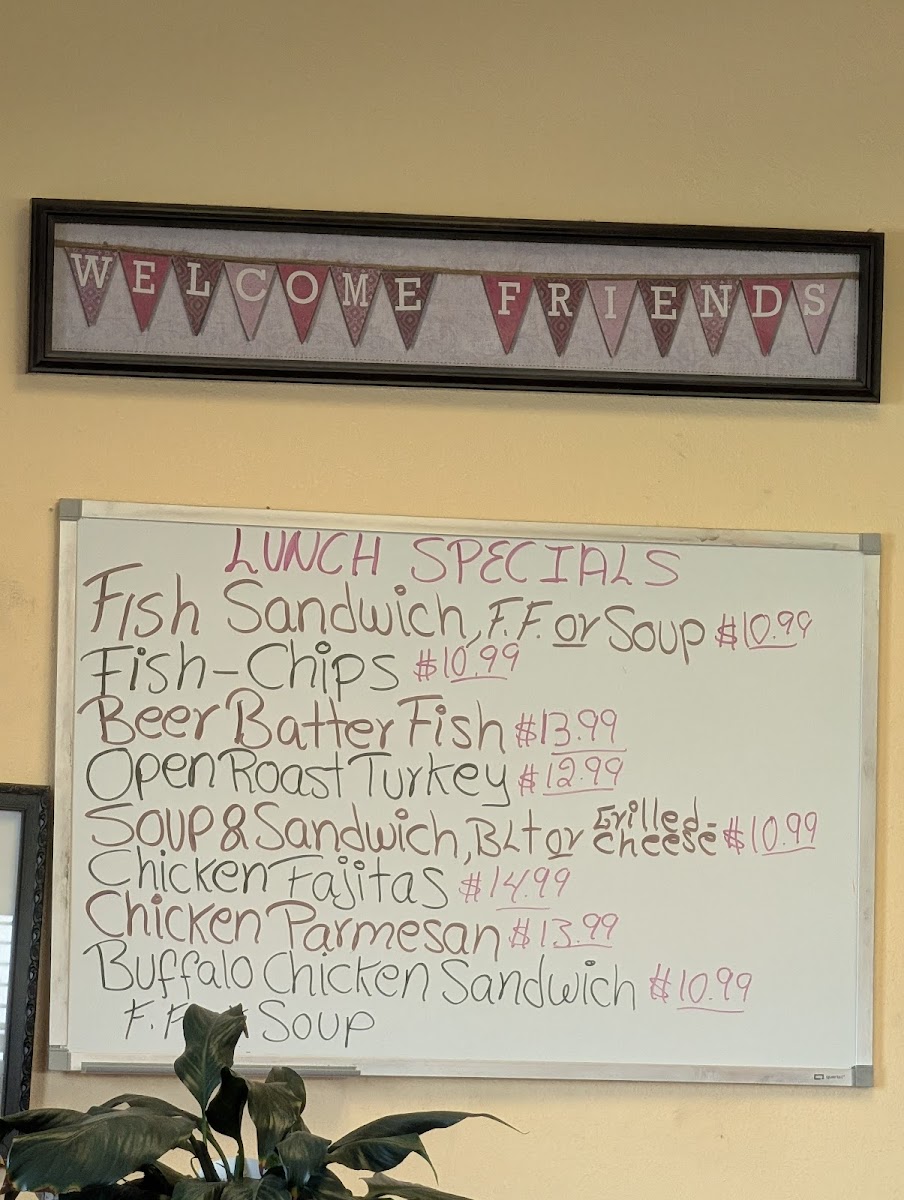 WELCOME FRIENDS
LUNCH SPECIALS
Fish Sandwich, F.F. or Soup $10.99
Fish-Chips $10.99
Beer Batter Fish $13.99
Open Roast Turkey $12.99
Soup & Sandwich, BLt or Grilled-Cheese $10.99
Chicken Fajitas $14.99
Chicken Parmesan $13.99
Buffalo Chicken Sandwich $10.99
F.F. Soup